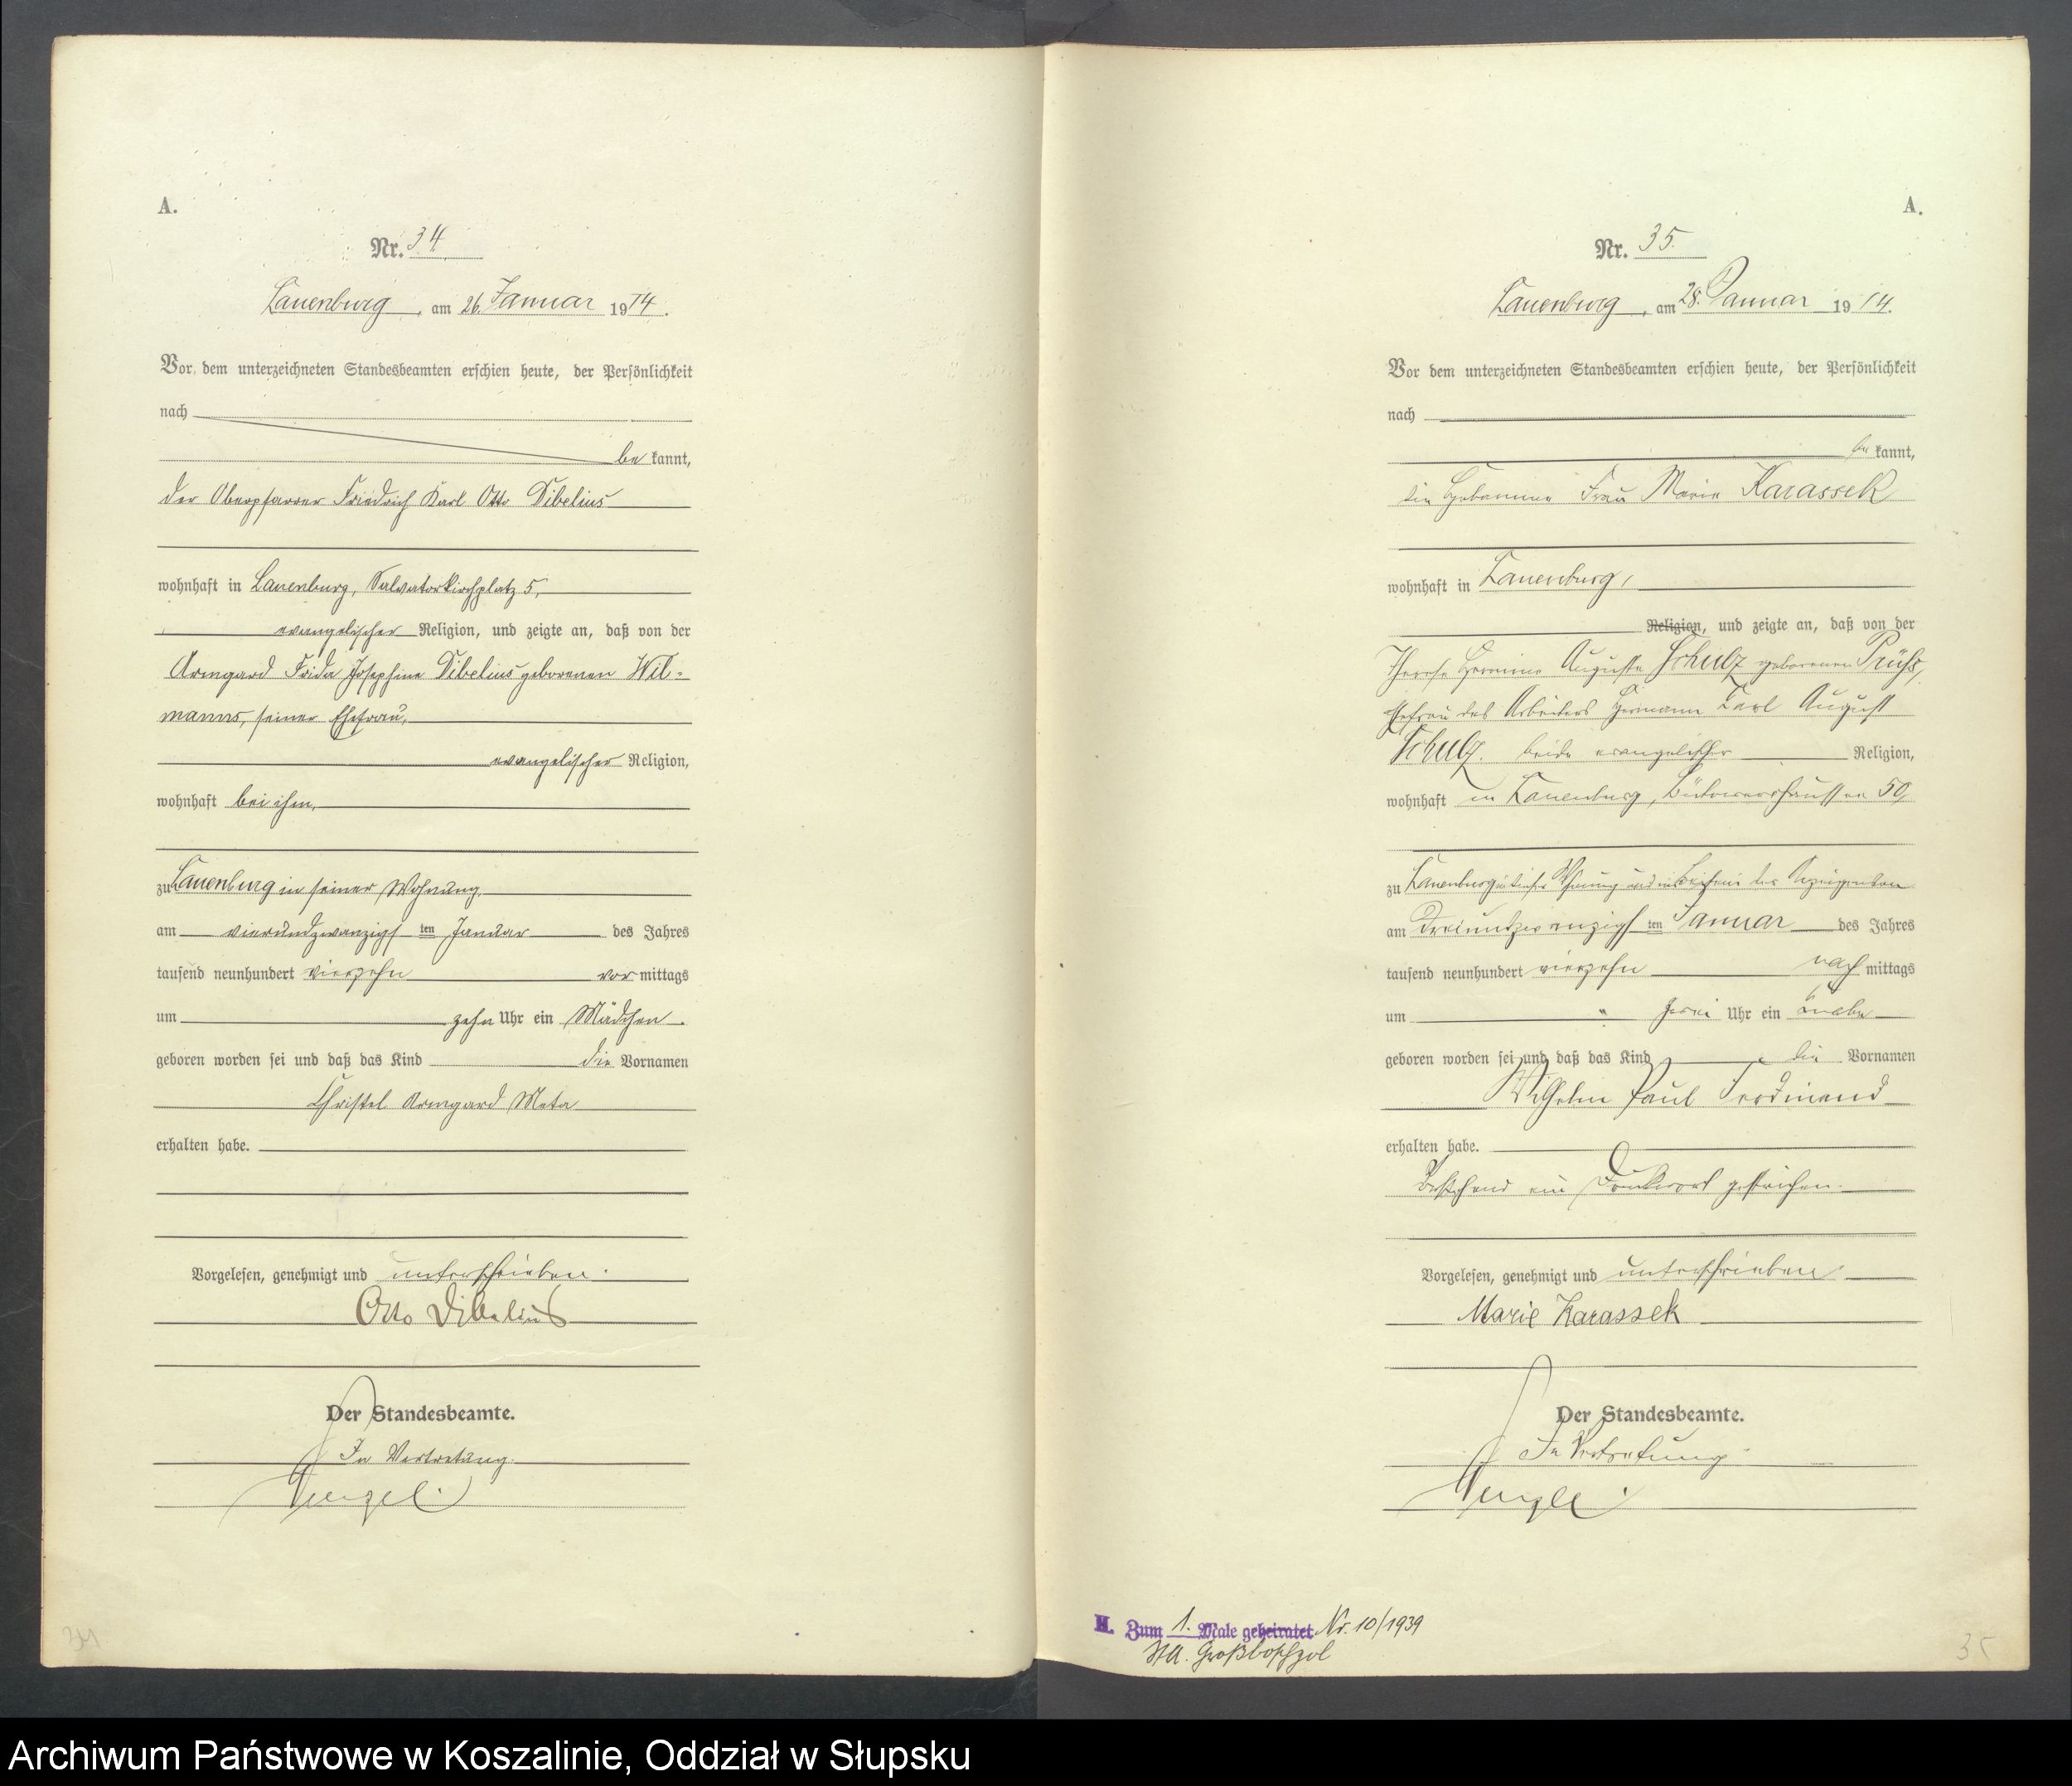 A.
Nr. 34
Lauenburg, am 26. Januar 1914.
Vor dem unterzeichneten Standesbeamten erschien heute, der Persönlichkeit
nach
be kannt,
der Oberpfarrer Friedrich Karl Otto Dibelius
wohnhaft in Lauenburg, Salvatorkirchplatz 5,
evangelischer Religion, und zeigte an, daß von der
Armgard Frida Josephine Dibelius geborenen Wil-
manns, seiner Ehefrau,
evangelischer Religion,
wohnhaft bei ihm,
zu Lauenburg in seiner Wohnung
am vierundzwanzigs ten Januar des Jahres
tausend neunhundert vierzehn vor mittags
um zehn Uhr ein Mädchen
geboren worden sei und daß das Kind die Vornamen
Christel Armgard Meta
erhalten habe.
Vorgelesen, genehmigt und unterschrieben.
Otto Dibelius
Der Standesbeamte.
In Vertretung.
34
A.
Nr. 35
Lauenburg, am 28. Januar 1914.
Vor dem unterzeichneten Standesbeamten erschien heute, der Persönlichkeit
nach
be kannt,
die Hebamme Frau Marie Karassek
wohnhaft in Lauenburg,
Religion, und zeigte an, daß von der
Therese Hermine Auguste Schulz geborenen Prühs,
Ehefrau des Arbeiters Hermann Karl August
Schulz, beide evangelischer Religion,
wohnhaft in Lauenburg, Bütowerchaussee 50,
zu Lauenburg in dieser Wohnung und in Beisein der Anzeigenden
am dreiundzwanzigs ten Januar des Jahres
tausend neunhundert vierzehn nach mittags
um zwei Uhr ein Knabe
geboren worden sei und daß das Kind die Vornamen
Wilhelm Paul Ferdinand
erhalten habe.
Vorstehend ein Druckwort gestrichen.
Vorgelesen, genehmigt und unterschrieben
Marie Karassek
Der Standesbeamte.
In Vertretung.
H. Zum 1. Male geheiratet Nr. 10/1939
StA. Großboschpol
35
Archiwum Państwowe w Koszalinie, Oddział w Słupsku